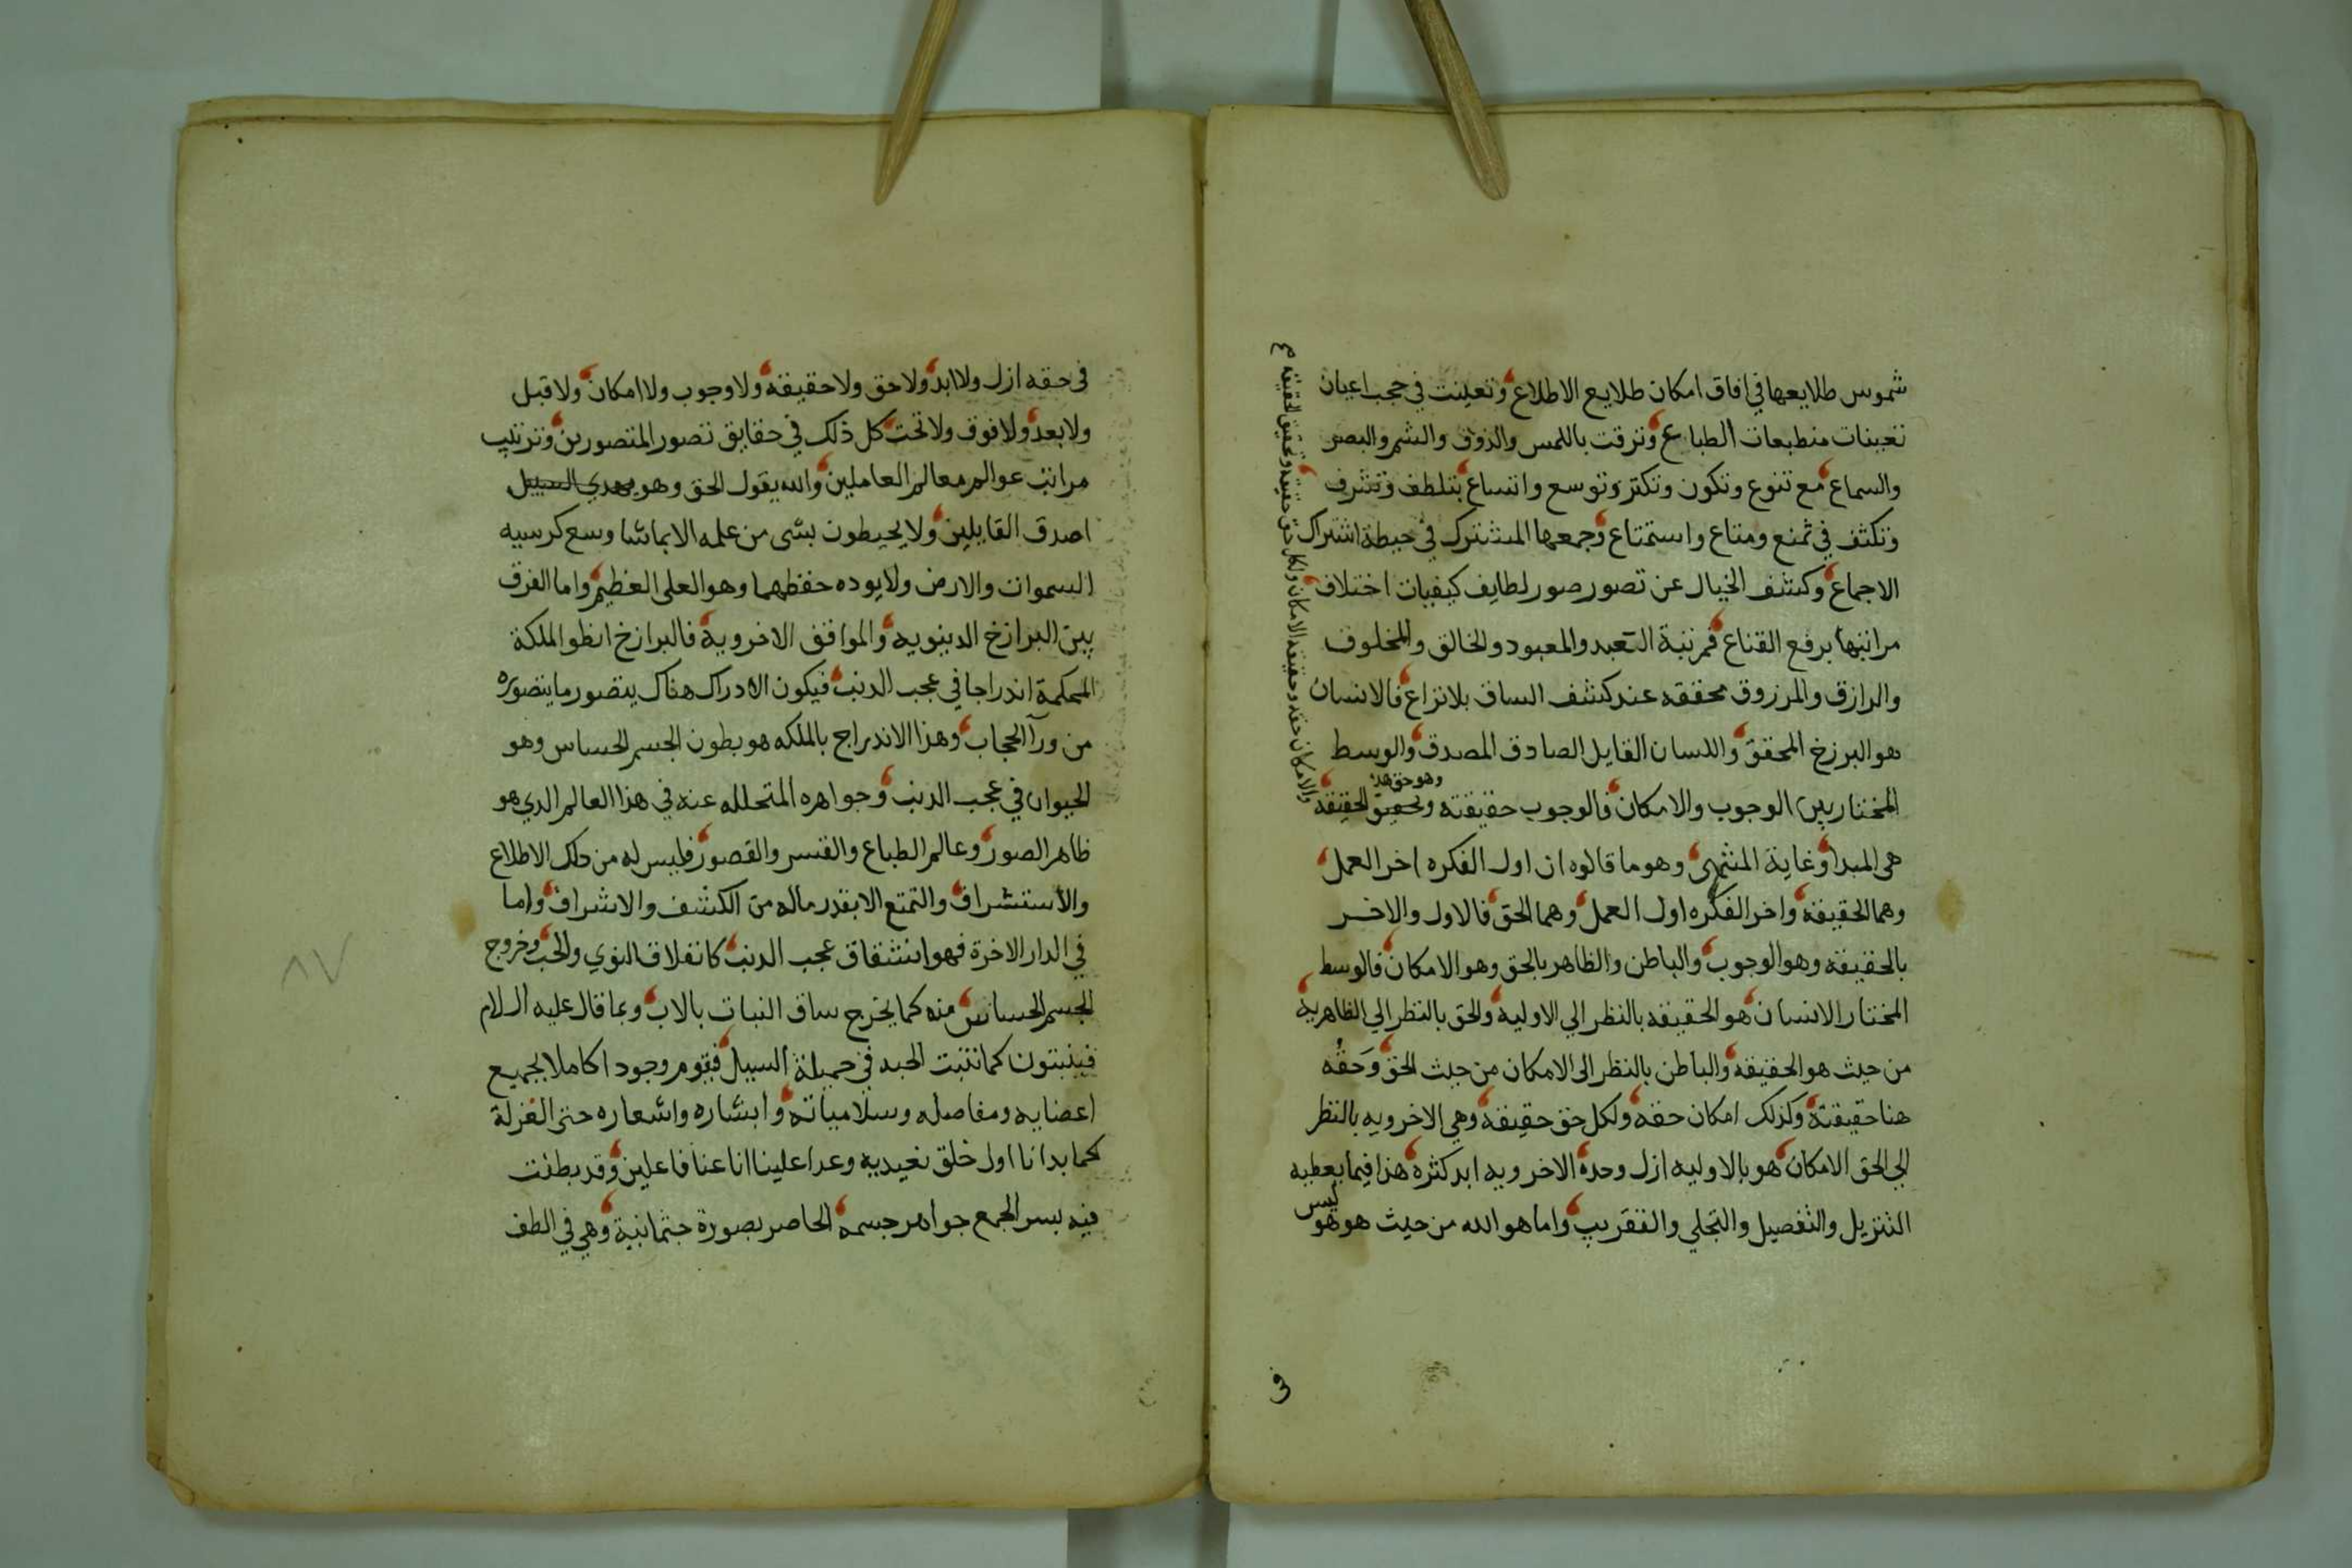 شموس طلايعها في افاق امكان طلايع الاطلاع وتعينت في حجب اعيان
تعينات منطبعات الطباع وترقت باللمس والذوق والشم والبصر
والسماع مع تنوع وتكون وتكثر وتوسع واتساع بتلطف وتشرف
وتكثف في تمنع ومتاع واستمتاع وجمعها المشترك في حيطة اشتراك
الاجماع وكشف الخيال عن تصور صور لطايف كيفيات اختلاف
مراتبها برفع القناع فمرتبة التعبد والمعبود والخالق والمخلوق
والرازق والمرزوق محققه عند كشف الساق بلا نزاع فالانسان
هو البرزخ المحقق واللسان القايل الصادق المصدق والوسط
وهو حق هذه
المختار بين الوجوب والامكان فالوجوب حقيقته وتحقيق الحقيقة
والامكان حقه وحقيقه الامكان ولكل حق حقيقه وتحقيق الحقيقه
هي المبدا وغاية المنتهي وهو ما قالوه ان اول الفكره اخر العمل
وهما الحقيقة واخر الفكره اول العمل وهما الحق فالاول والاخر
بالحقيقه وهو الوجوب والباطن والظاهر بالحق وهو الامكان فالوسط
المختار الانسان هو الحقيقه بالنظر الي الاوليه والحق بالنظر الي الظاهريه
من حيث هو الحقيقه والباطن بالنظر الى الامكان من حيث الحق وحقه
هنا حقيقته وكذلك امكان حقه ولكل حق حقيقه وهي الاخرويه بالنظر
الي الحق الامكان هو بالاوليه ازل وحدة الاخرويه ابد كثره هذا فيما يعطيه
ليس
التنزيل والتفصيل والتجلي والتقريب واما هو الله من حيث هو هو
في
في حقه ازل ولا ابد ولا حق ولا حقيقه ولا وجوب ولا امكان ولا قبل
ولا بعد ولا فوق ولا تحت كل ذلك في حقايق تصور المتصورين وترتيب
مراتب عوالم معالم العاملين والله يقول الحق وهو يهدي السبيل
اصدق القايلين ولا يحيطون بشى من علمه الا بما شا وسع كرسيه
السموات والارض ولا يوده حفظهما وهو العلى العظيم واما الفرق
بين البرازخ الدنيويه والمواقف الاخرويه فالبرازخ انظوا الملكة
المحكمة اندراجا في عجب الذنب فيكون الادراك هناك يتصور ما يتصوره
من ورآ الحجاب وهذا الاندراج بالملكه هو بطون الجسم الحساس وهو
الحيوان في عجب الذنب وجواهره المتحلله عنه في هذا العالم الذي هو
ظاهر الصور وعالم الطباع والقسر والقصور فليس له من ذلك الاطلاع
والاستشراف والتمتع الا بقدر ماله من الكشف والاشراف واما
في الدار الاخرة فهو انشقاق عجب الذنب كانفلاق النوي والحب وخروج
الجسم الحساس منه كما يخرج ساق النبات بالاب وبما قال عليه السلام
فينبتون كما تنبت الحبه في حميلة السيل فيقوم وجودا كاملا بجميع
اعضايه ومفاصله وسلامياته وابشاره واشعاره حتى الغرلة
كما بدانا اول خلق نعيديه وعدا علينا انا عنا فاعلين وقد بطنت
فيه بسر الجمع جواهر جسمه الحاصر بصورة جثمانية وهي في الطف
٨٧